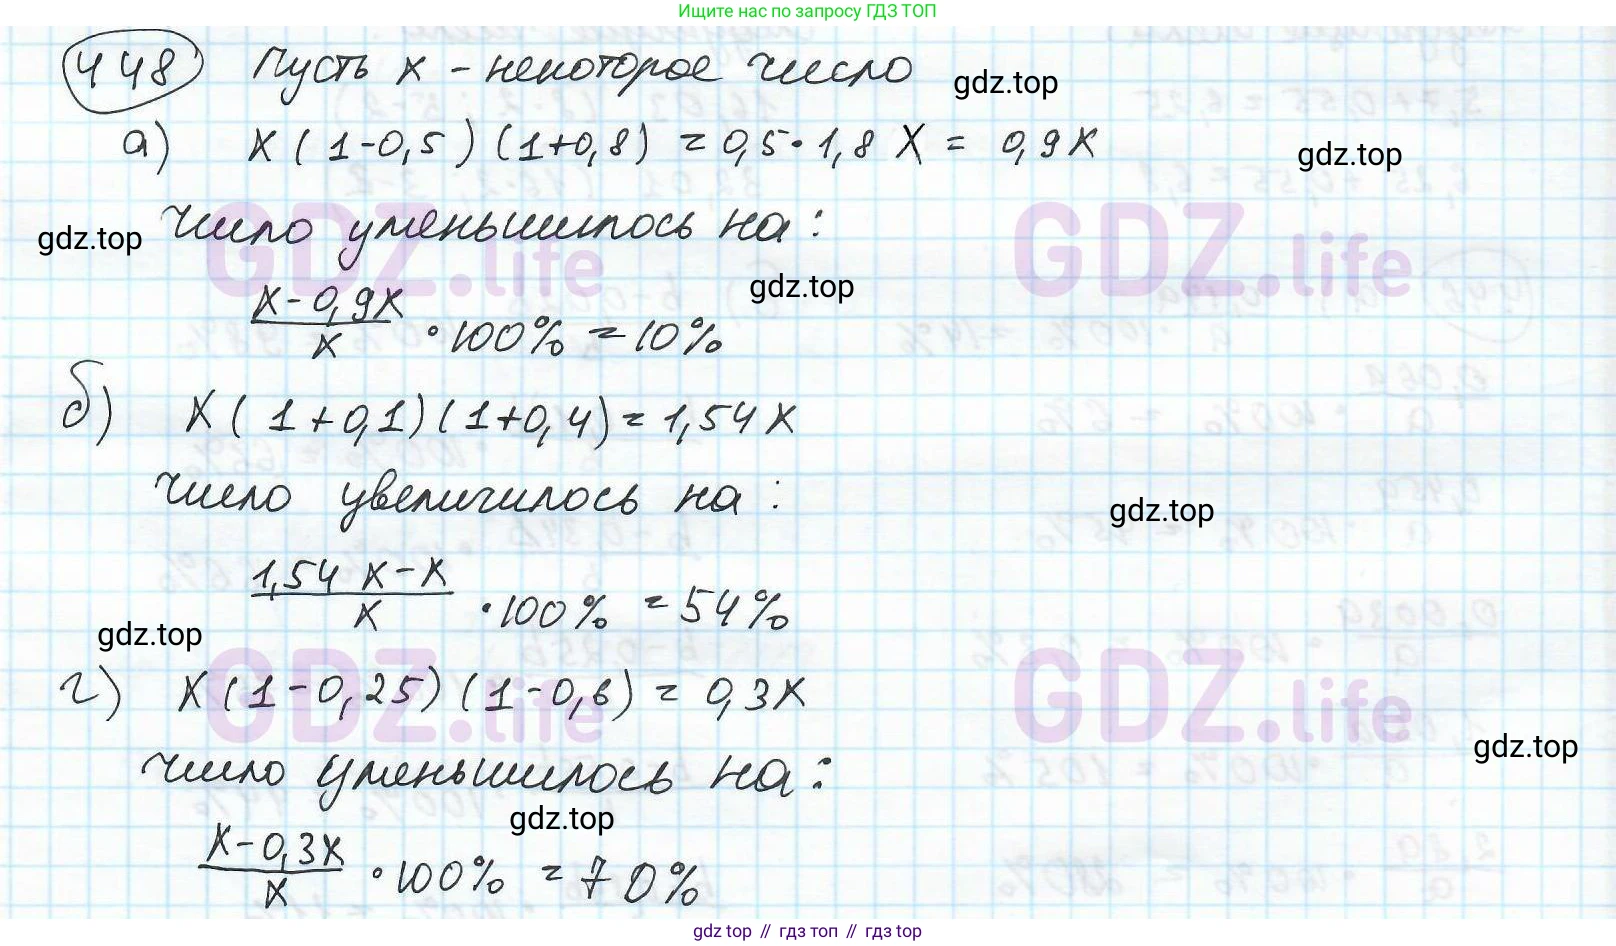 Ищите нас по запросу ГДЗ ТОП
448 Пусть x - некоторое число
gdz.top
а) x(1-0,5)(1+0,8) = 0,5·1,8x = 0,9x
gdz.top
GDZ.life GDZ.life
gdz.top
число уменьшилось на:
gdz.top
(x-0,9x)/x · 100% = 10%
б) x(1+0,1)(1+0,4) = 1,54x
число увеличилось на:
gdz.top
(1,54x-x)/x · 100% = 54%
gdz.top
GDZ.life GDZ.life
г) x(1-0,25)(1-0,6) = 0,3x
gdz.top
число уменьшилось на:
gdz.top
(x-0,3x)/x · 100% = 70%
gdz top // гдз топ // гдз top